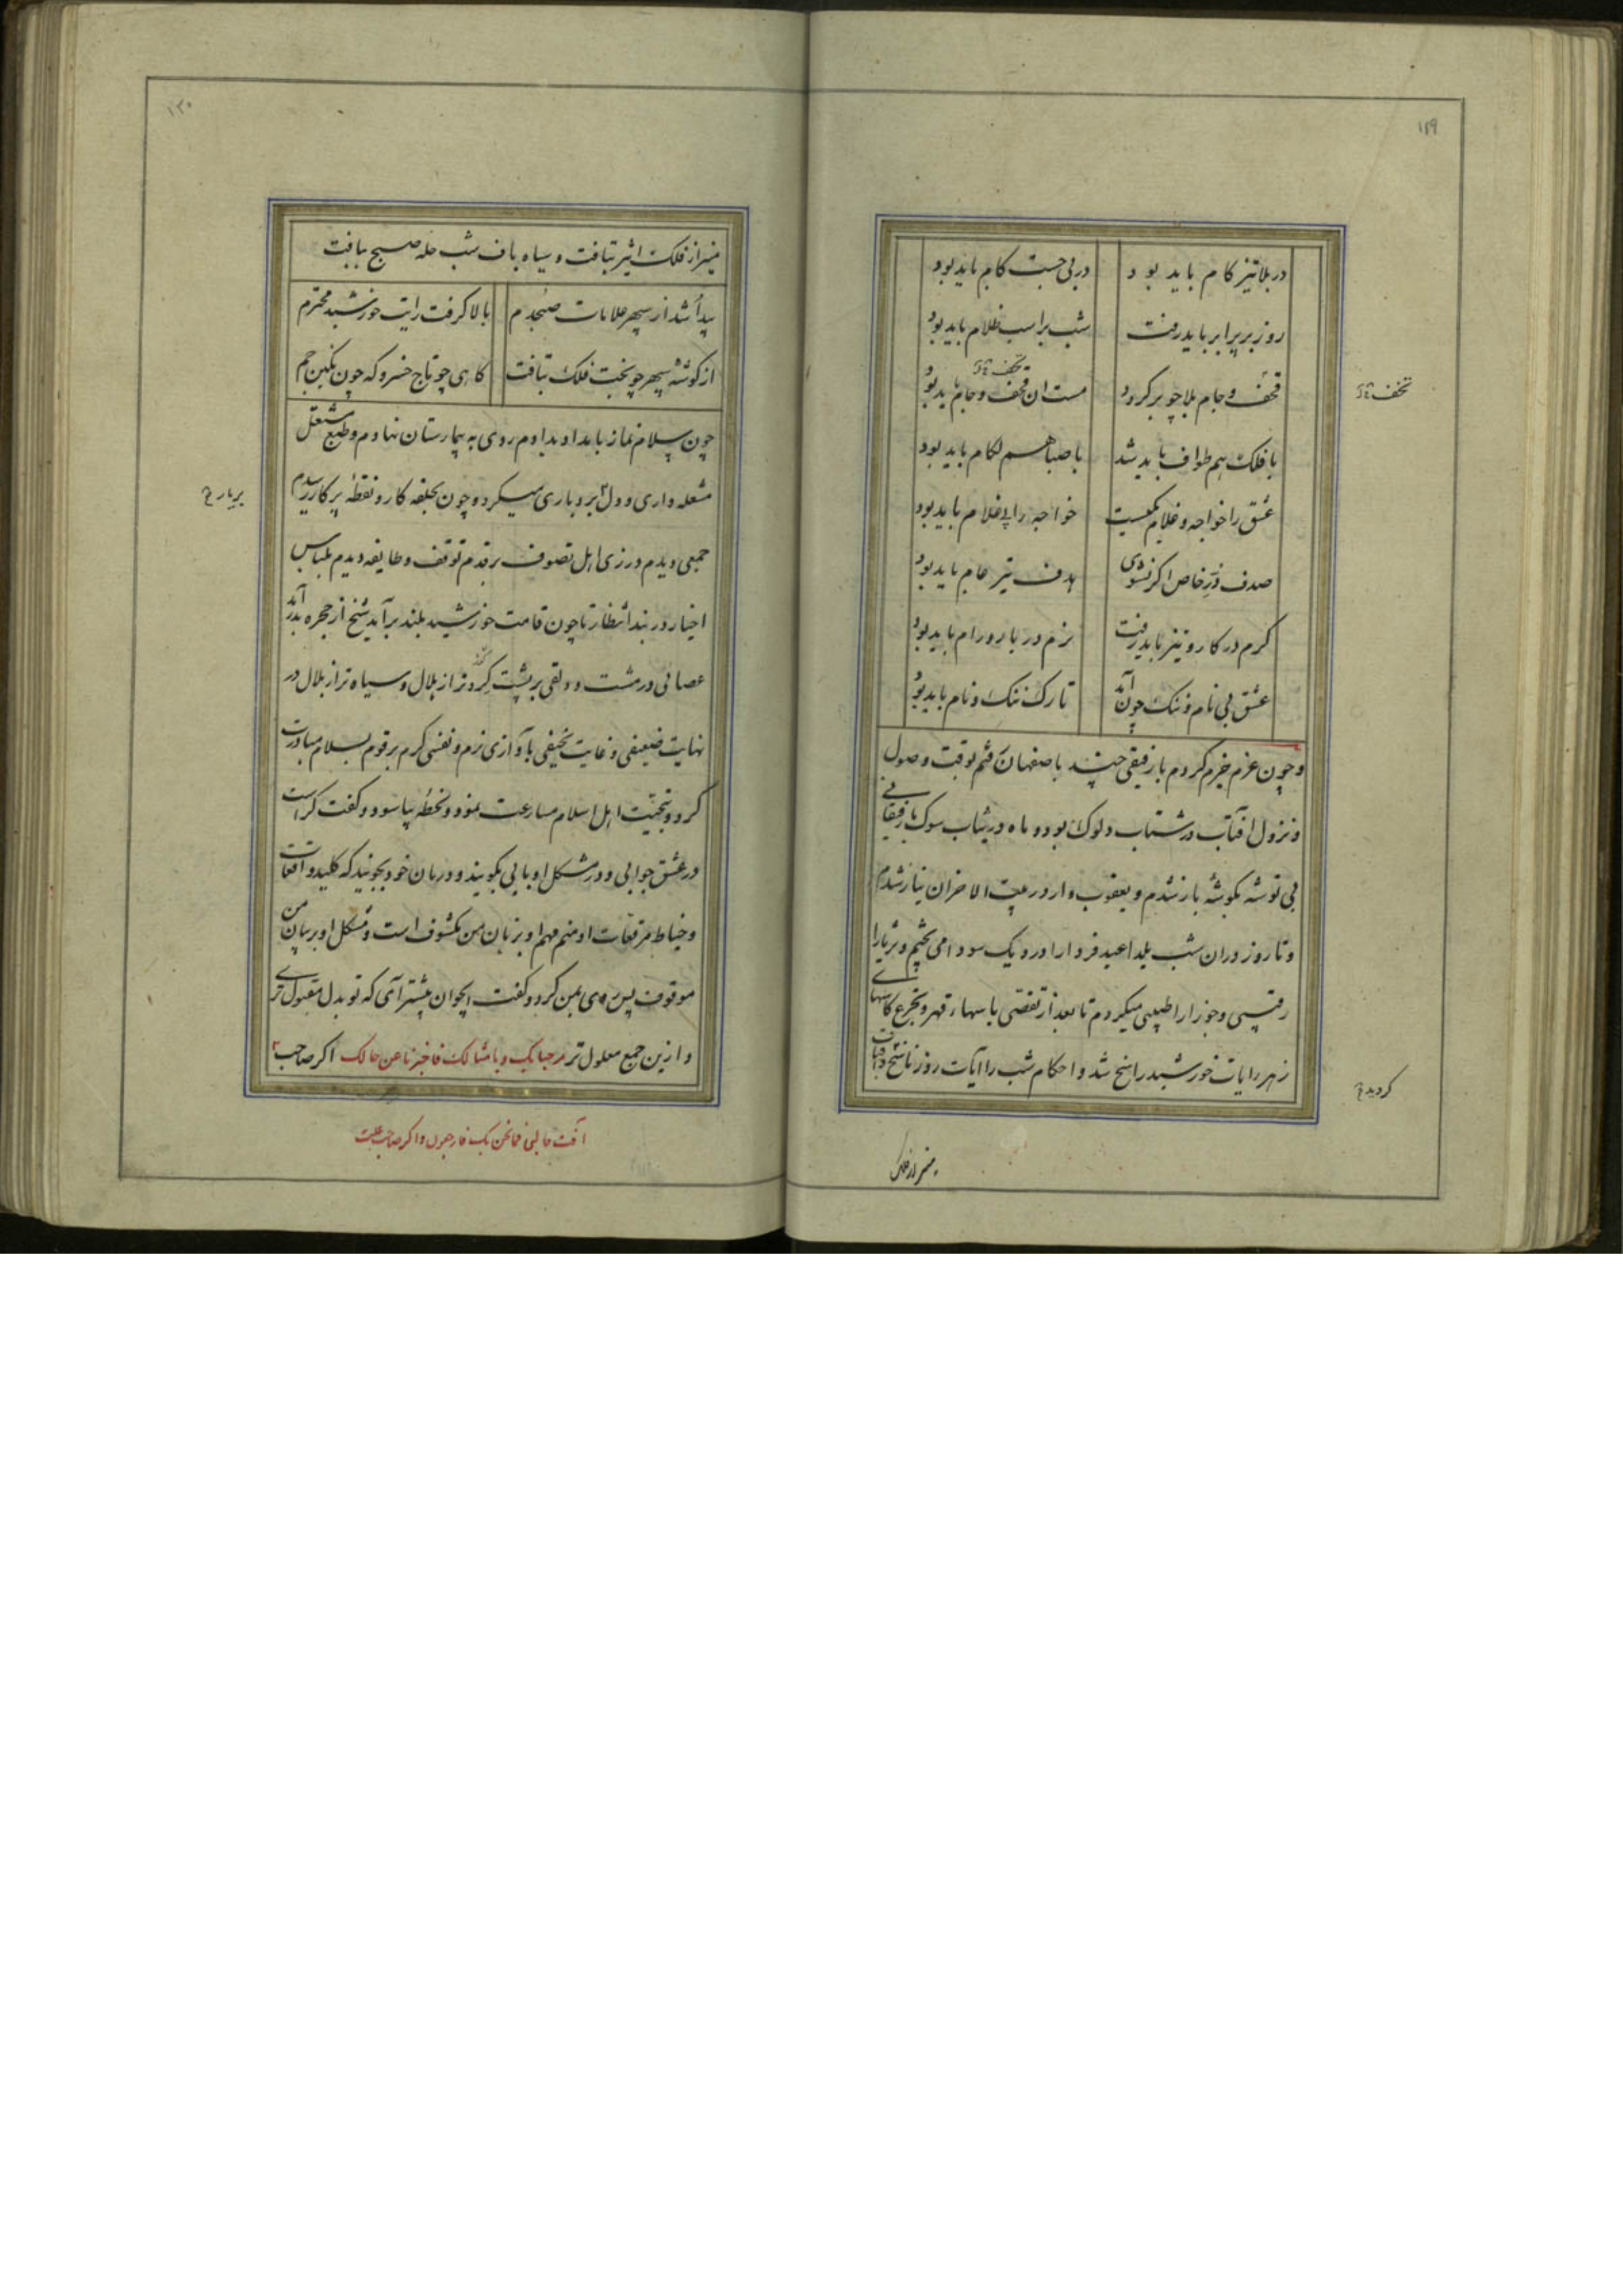 ۱۲۹
در بلا تیز کام باید بود
در پی جست کام باید بود
روز بر برابر باید رفت
شب بر اسب ظلام باید بود
قحف و جام بلا چو بر کردد
مست ان قحف و جام باید بود
با فلک هم طواف باید شد
با صبا هم لکام باید بود
عشق را خواجه و غلام یکیست
خواجه را پی غلام باید بود
صدف در خاص اگر نشوی
هدف تیر عام باید بود
کرم در کار و تیز باید رفت
نرم در بار و رام باید بود
عشق بی نام و ننک چون آمد
تارک ننک و نام باید بود
و چون عزم جزم کردم با رفیقی چند باصفهان قثم بوقت وصول
و نزول افتاب در شتاب دلوک بود و ماه در شاب سوک با رفیقانی
بی توشه بکوشه باز شدم و یعقوب وار در بیت الاحزان نیاز شدم
و تا روز دران شب یلدا عید فردا را در دیک سودا می پختم و ثریا را
رقیبی و جوزا را طبیبی میکردم تا بعد از تقضی باسهاء قهر و تجرع کاسهای
زهر رایات خورشید راسخ شد و احکام شب را آیات روز ناسخ
کردید
منیر از فلک
۱۳۰
منیر از فلک اثیر بتافت و سیاه باف شب حله صبح ببافت
پیدا شد از سپهر علامات صبحدم
بالا کرفت رایت خورشید محترم
از کوشه سپهر چو بخت فلک بتافت
کاهی چو تاج خسرو که چون نکین جم
چون سلام نماز بامداد بدادم روی به بیمارستان نهادم و طبع مشتعل
مشعله داری و دل بردباری میکرد و چون بحلقه کار و نقطه پرکار رسیدم
جمعی دیدم در زی اهل تصوف بر قدم توقف و طایفه دیدم بلباس
اخیار در بند انتظار تا چون قامت خورشید بلند برآید شیخ از حجره بدر آید
عصائی در مشت و دلقی بر پشت کردتر از هلال و سیاه تر از بلال در
نهایت ضعیفی و غایت نحیفی بآوازی نرم و نفسی کرم بر قوم بسلام مبادرت
کرد و بتحیت اهل اسلام مسارعت نمود و لحظه بیاسود و کفت کراست
در عشق جوابی و در مشکل او بابی بکویند و درمان خود بجویند که کلید واقعات
و خیاط مرقعات او منم مهم او بزبان من مکشوف است و مشکل او بر بیان من
موقوف پس روی بمن کرد و کفت ایجوان پیشتر آی که تو بدل مقبول تری
و ازین جمع معلول تر مرحبا بک و بامثالک فاخبرنا عن حالک اگر صاحب